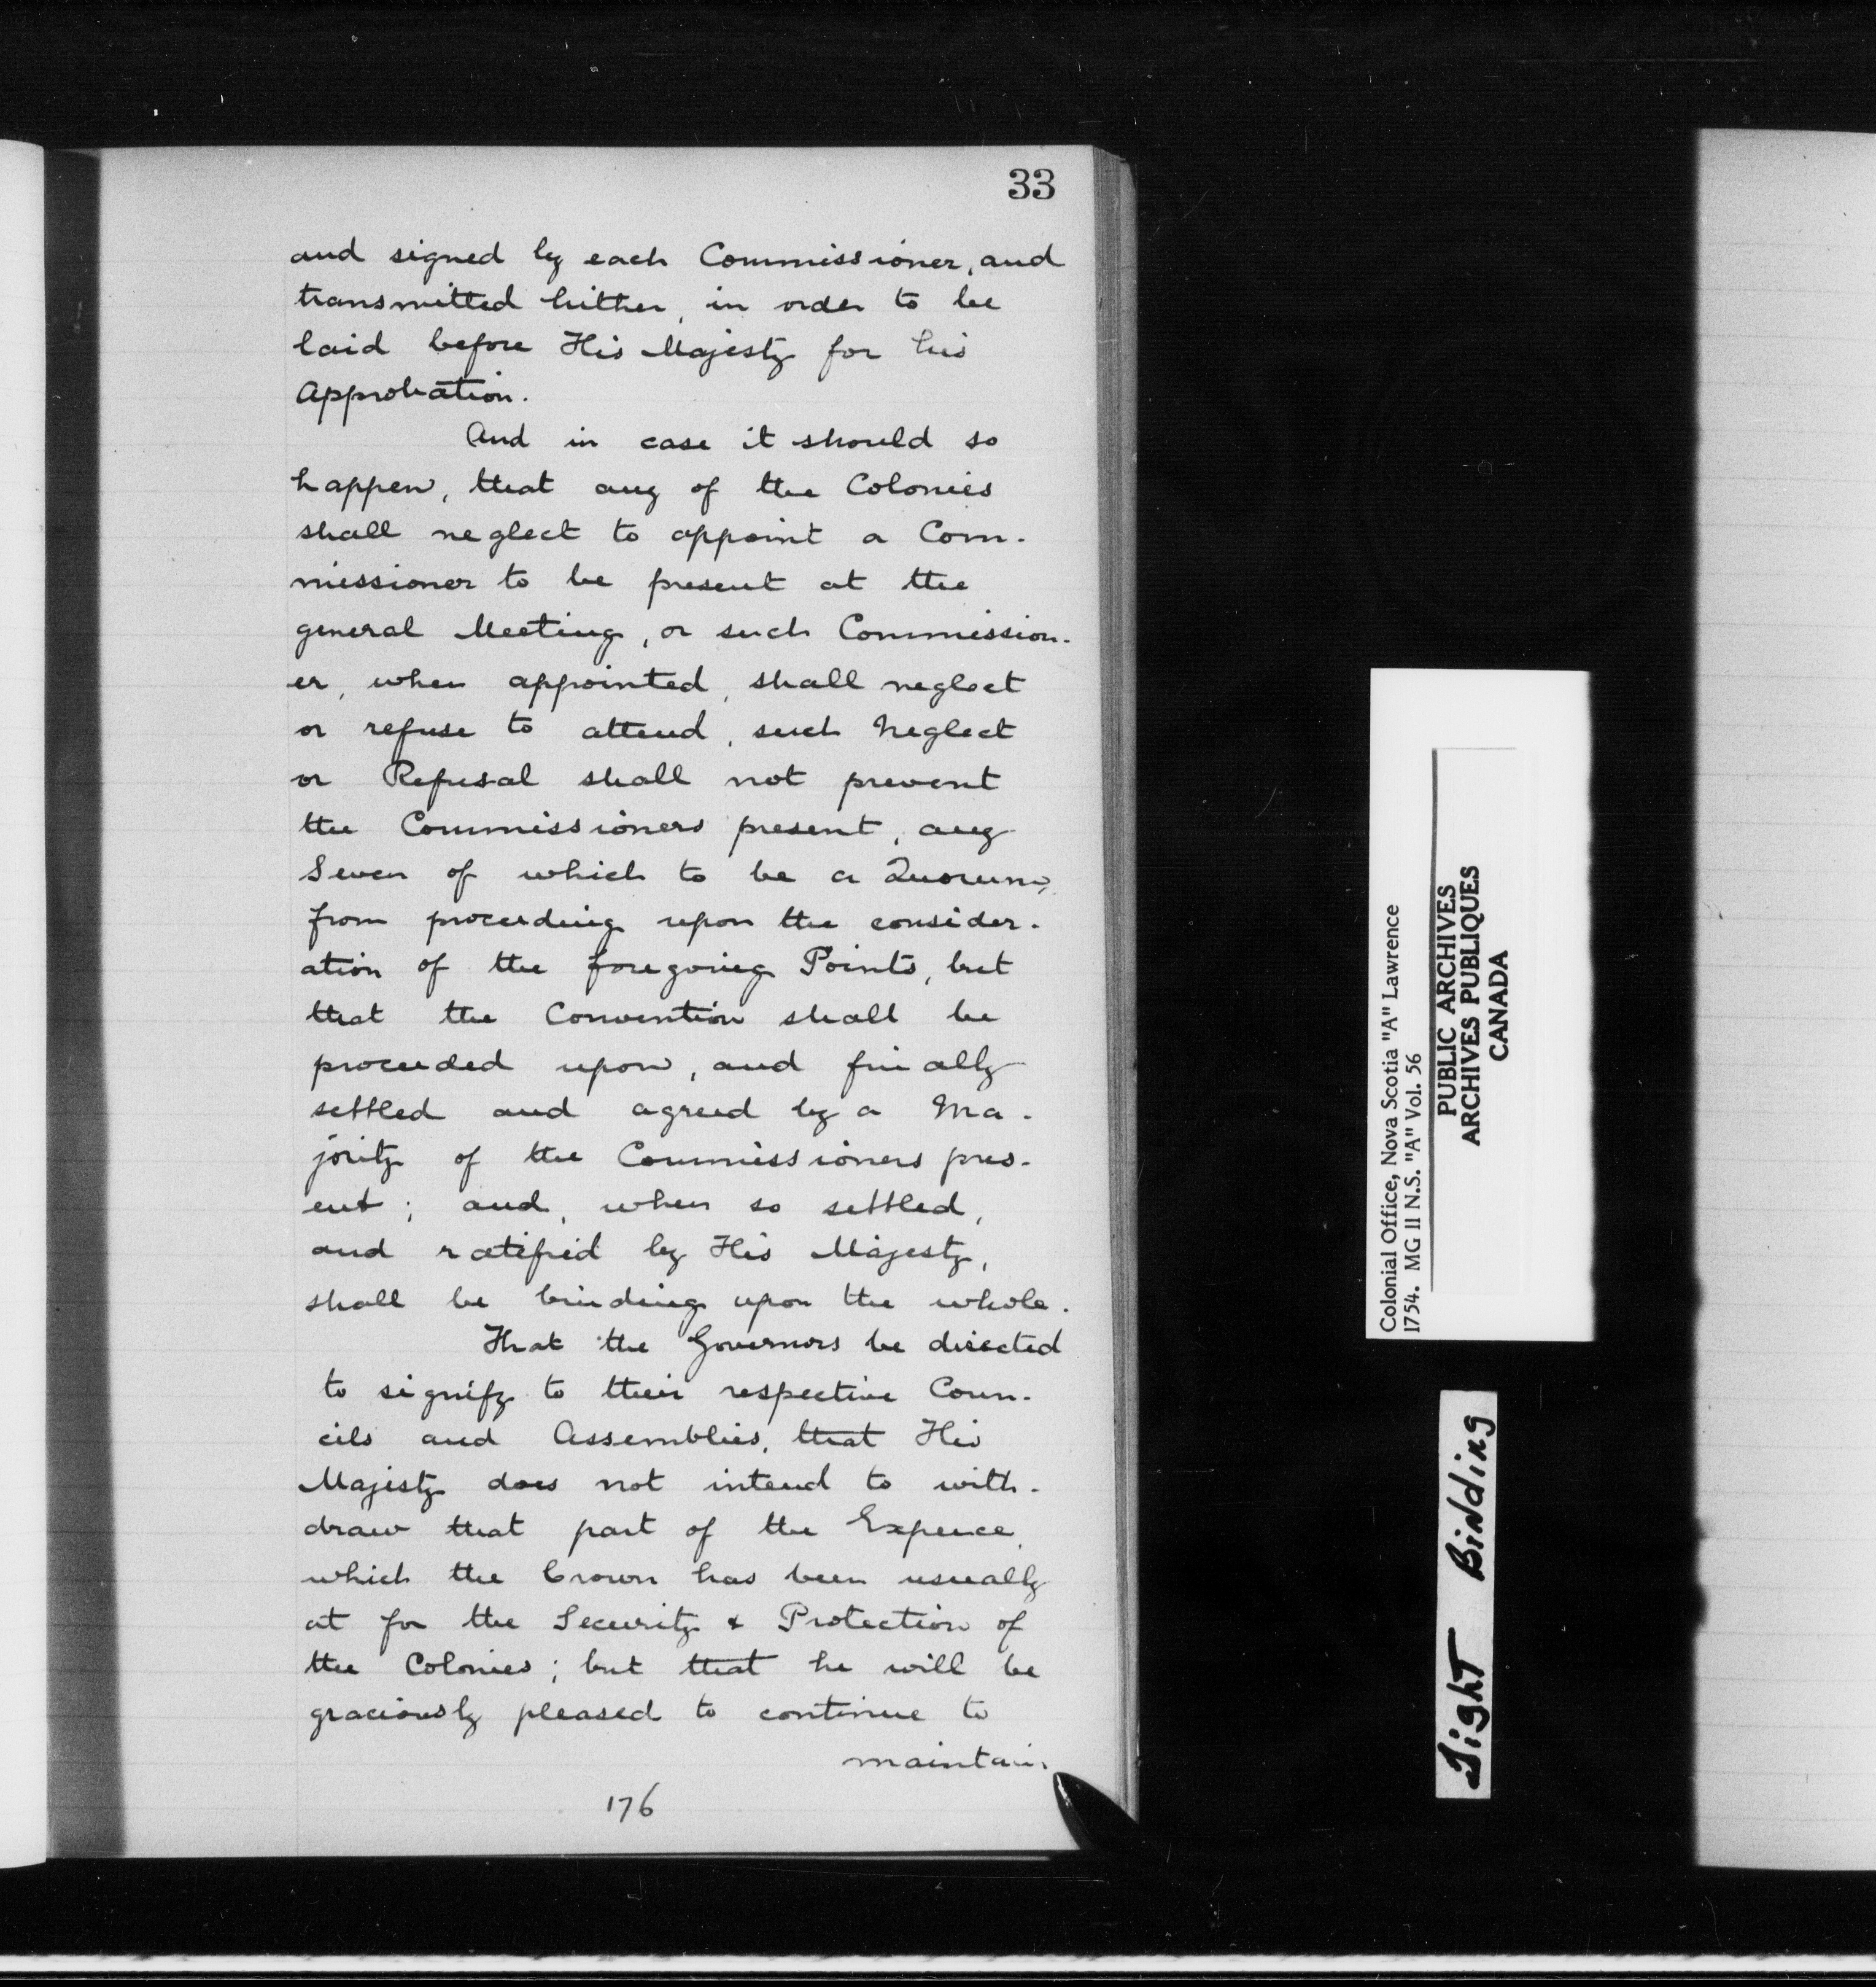 33
and signed by each Commissioner, and
transmitted hither, in order to be
laid before His Majesty for his
Approbation.
And in case it should so
happen, that any of the Colonies
shall neglect to appoint a Com-
missioner to be present at the
general Meeting, or such Commission-
er, when appointed, shall neglect
or refuse to attend, such Neglect
or Refusal shall not prevent
the Commissioners present, any
Seven of which to be a Quorum,
from proceeding upon the consider-
ation of the foregoing Points, but
that the Convention shall be
proceeded upon, and finally
settled and agreed by a Ma-
jority of the Commissioners pres-
ent; and, when so settled,
and ratified by His Majesty,
shall be binding upon the whole.
That the Governors be directed
to signify to their respective Coun-
cils and Assemblies, that His
Majesty does not intend to with-
draw that part of the Expence,
which the Crown has been usually
at for the Security & Protection of
the Colonies; but that he will be
graciously pleased to continue to
maintain
176
Colonial Office, Nova Scotia "A" Lawrence
1754. MG II N.S. "A" Vol. 56
PUBLIC ARCHIVES
ARCHIVES PUBLIQUES
CANADA
Tight Binding